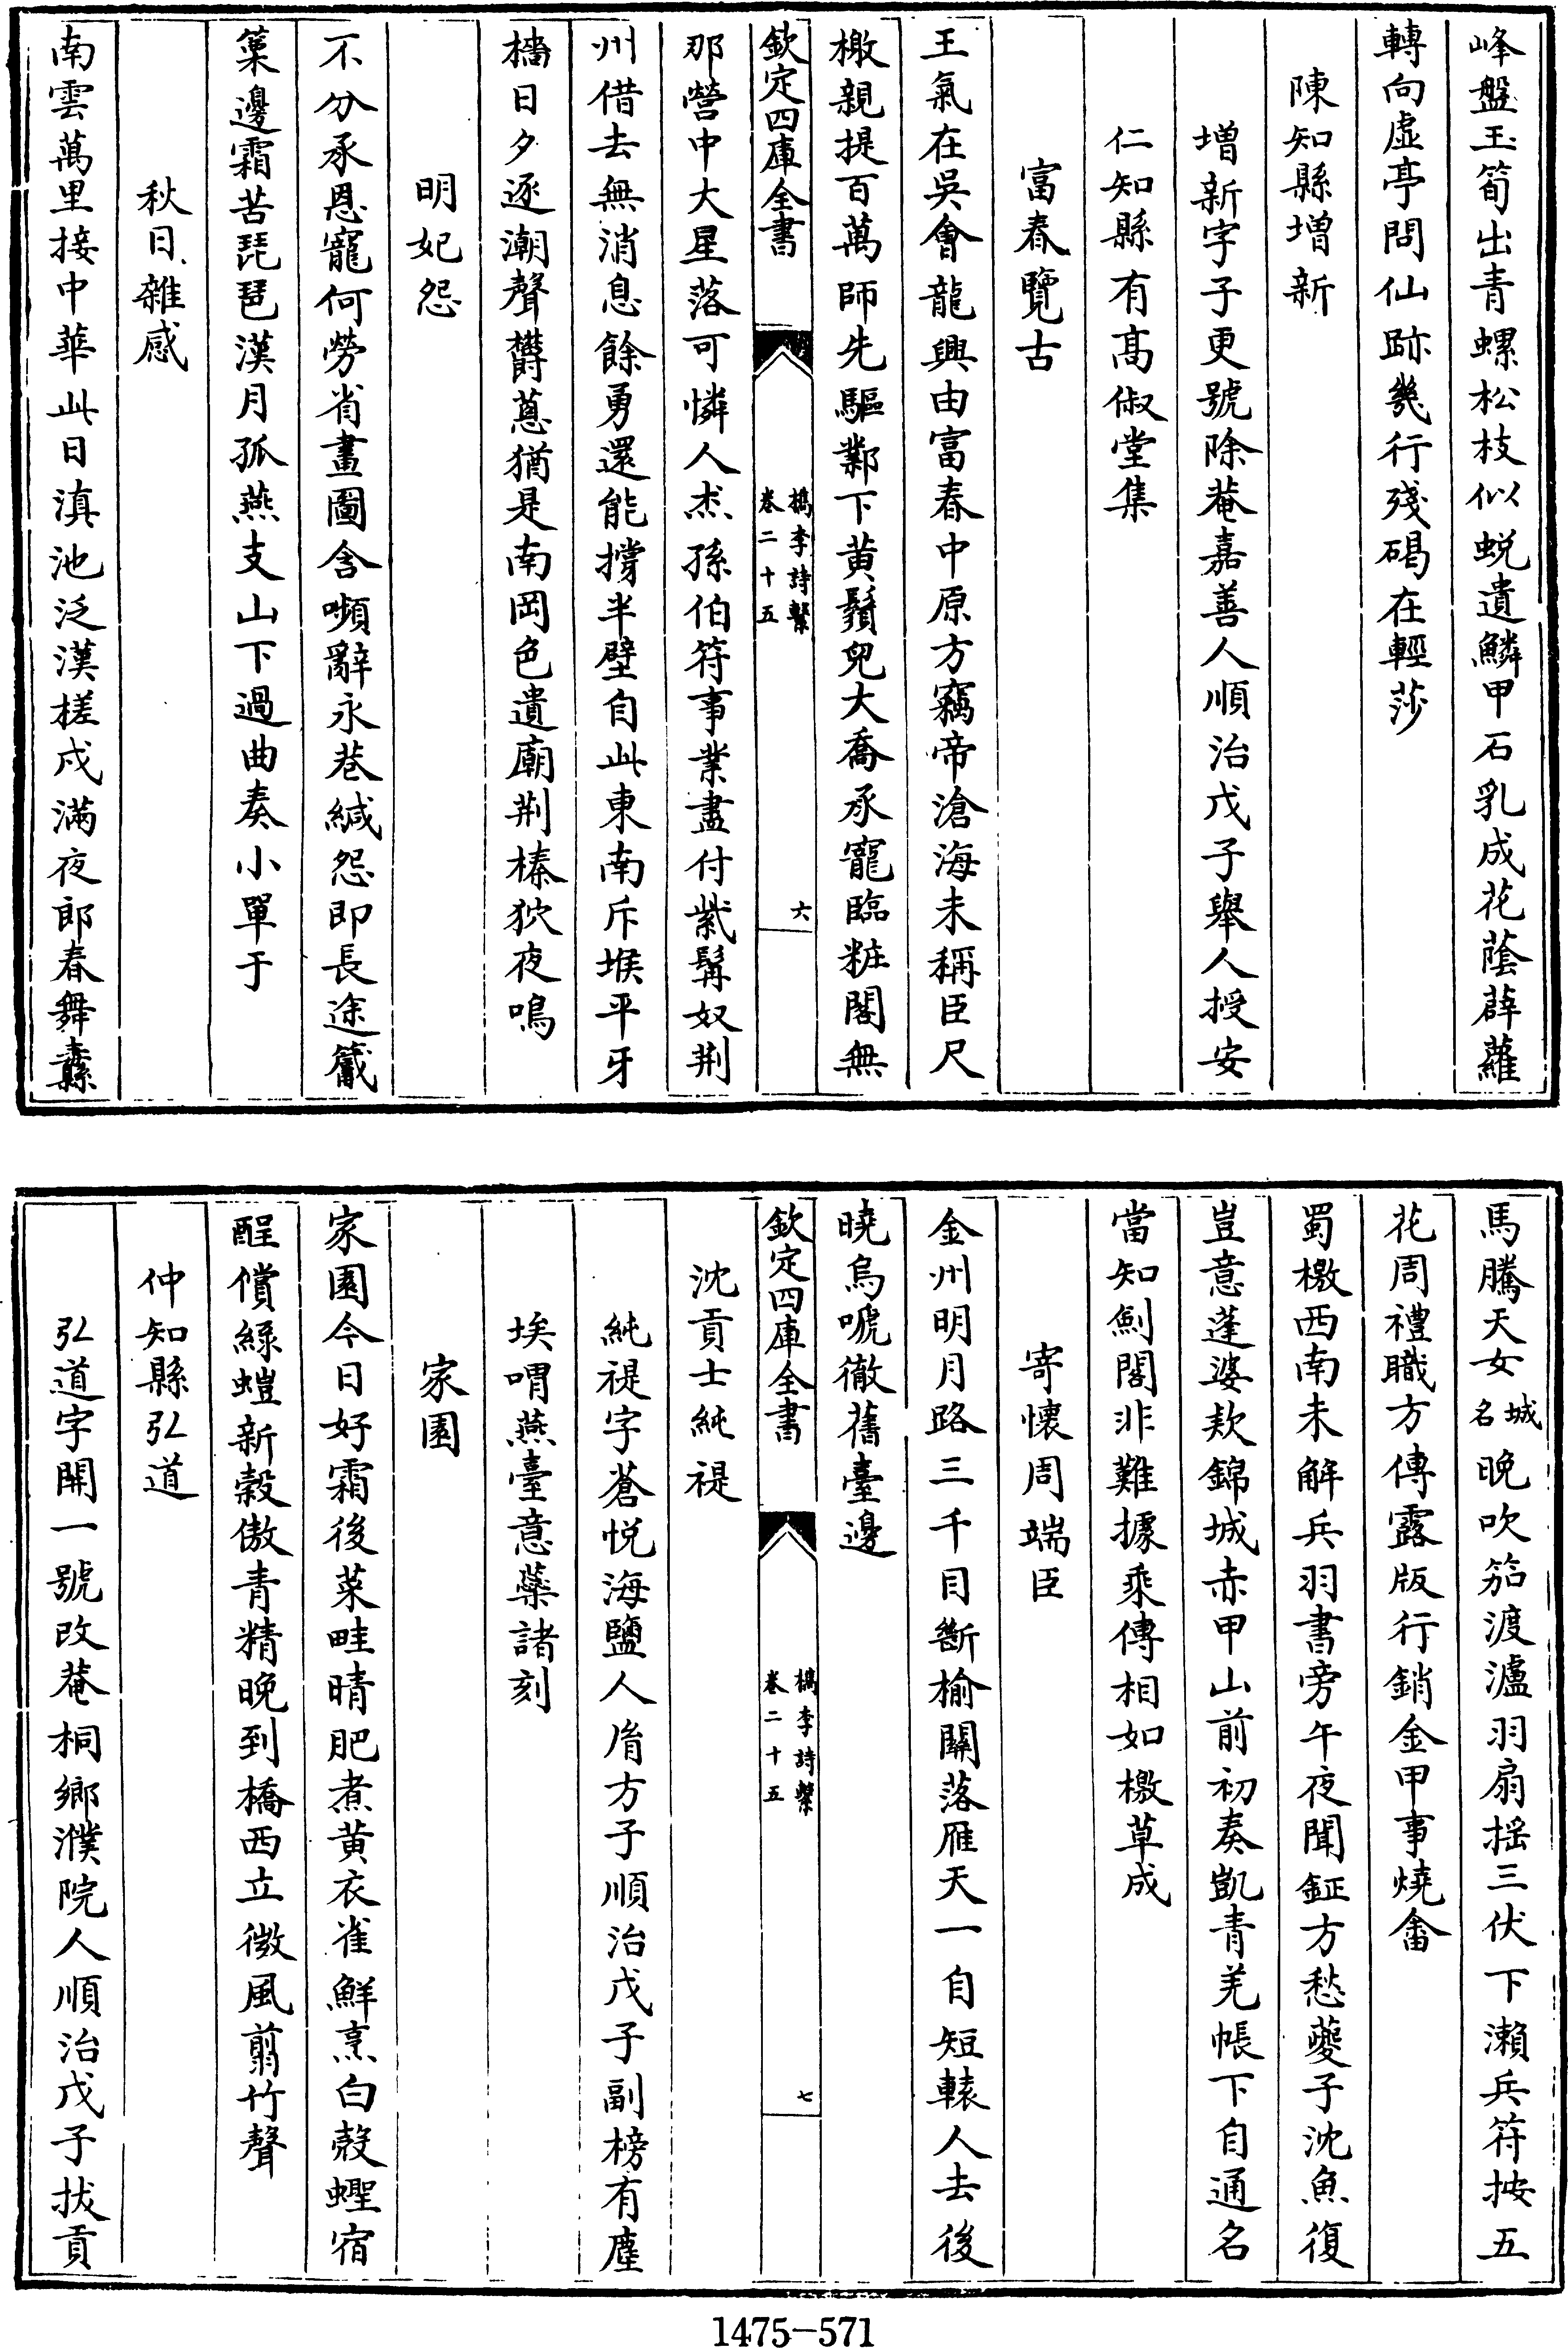 峰盤玉筍出青螺松枝似蛻遺鱗甲石乳成花蔭薜蘿
轉向虛亭問仙跡幾行殘碣在輕莎
陳知縣增新
增新字子更號除菴嘉善人順治戊子舉人授安
仁知縣有髙俶堂集
富春覽古
王氣在吳會龍興由富春中原方竊帝滄海未稱臣尺
檄親提百萬師先驅鄴下黄鬚兒大喬承寵臨粧閣無
欽定四庫全書
檇李詩繫
卷二十五
六
那營中大星落可憐人杰孫伯符事業盡付紫髯奴荆
州借去無消息餘勇還能撐半壁自此東南斥堠平牙
檣日夕逐潮聲欝葱猶是南岡色遺廟荆榛狖夜鳴
明妃怨
不分承恩寵何勞省畫圖含嚬辭永巷緘怨即長途觱
篥邊霜苦琵琶漢月孤燕支山下過曲奏小單于
秋日雜感
南雲萬里接中華此日滇池泛漢槎戍滿夜郎春舞纛
馬騰天女城名晚吹笳渡瀘羽扇揺三伏下瀨兵符按五
花周禮職方傳露版行銷金甲事燒畬
蜀檄西南未解兵羽書旁午夜聞鉦方愁夔子沈魚復
豈意蓬婆欵錦城赤甲山前初奏凱青羌帳下自通名
當知劍閣非難據乘傳相如檄草成
寄懷周端臣
金州明月路三千目斷榆關落雁天一自短轅人去後
曉烏嗁徹舊臺邊
欽定四庫全書
檇李詩繫
卷二十五
七
沈貢士純禔
純禔字蒼悦海鹽人胤方子順治戊子副榜有塵
埃喟燕臺意蘂諸刻
家園
家園今日好霜後菜畦晴肥煮黄衣雀鮮烹白殼蟶宿
酲償綠螘新穀傲青精晚到橋西立微風翦竹聲
仲知縣弘道
弘道字開一號改菴桐鄉濮院人順治戊子拔貢
1475-571